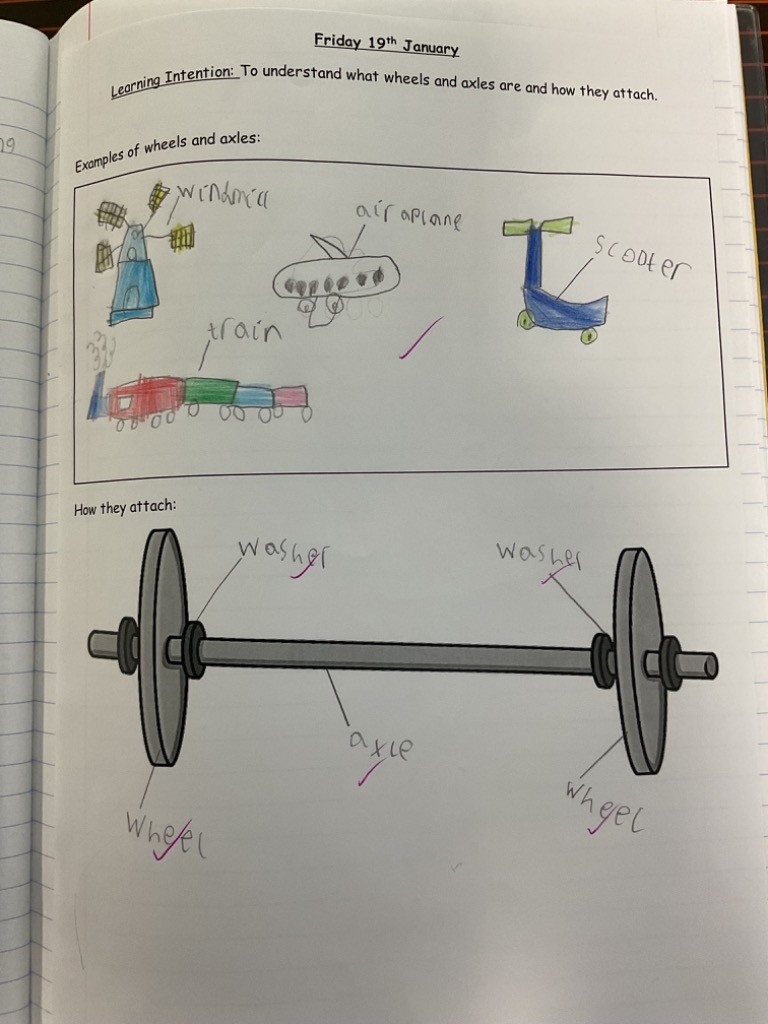 Friday 19th January
Learning Intention: To understand what wheels and axles are and how they attach.
Examples of wheels and axles:
windmill
airaplane
scooter
train
How they attach:
washer
washer
axle
wheel
wheel